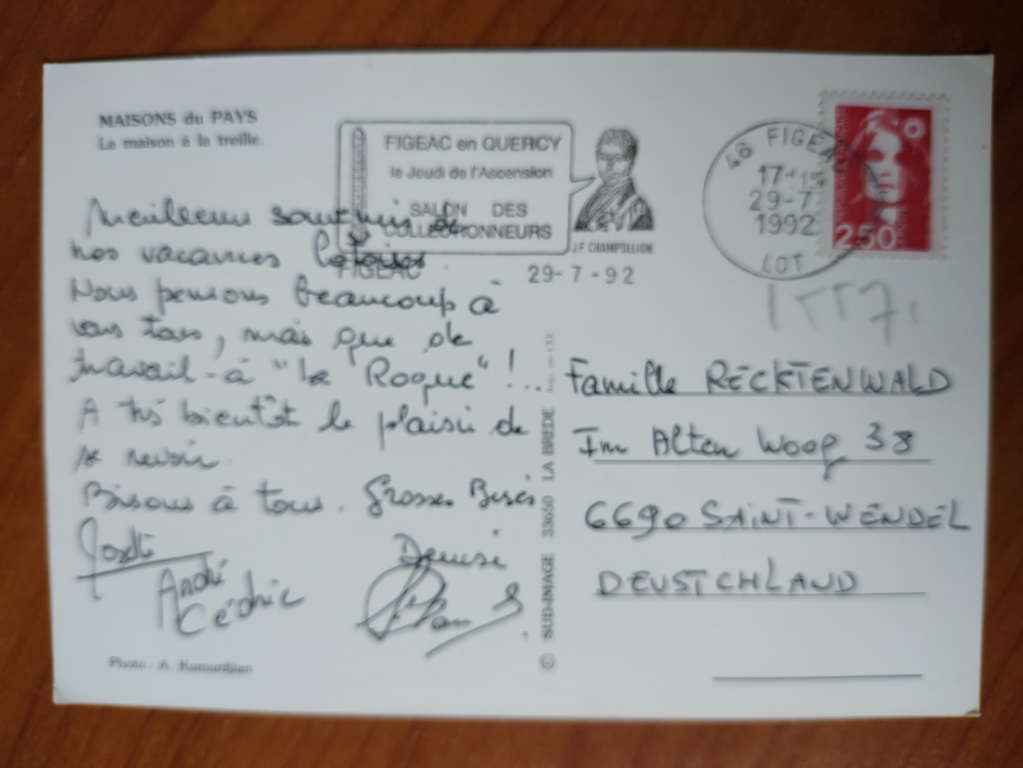 MAISONS du PAYS
La maison à la treille.
FIGEAC en QUERCY
le Jeudi de l'Ascension
SALON DES
COLLECTIONNEURS
FIGEAC
J-F CHAMPOLLION
29-7-92
46 FIGEAC
17H15
29-7
1992
LOT
2,50
Meilleurs souvenirs de
nos vacances
Nous pensons beaucoup à
vous tous, mais que de
travail à "La Roque" !...
A très bientôt le plaisir de
se revoir.
Bisous à tous. Grosses Bises
André
Cédric
Denise
Famille RECKTENWALD
Im Alten Woog 38
6690 SAINT-WENDEL
DEUSTCHLAND
© SUD-IMAGE 33650 LA BREDE
Photo : A. Kumurdjian